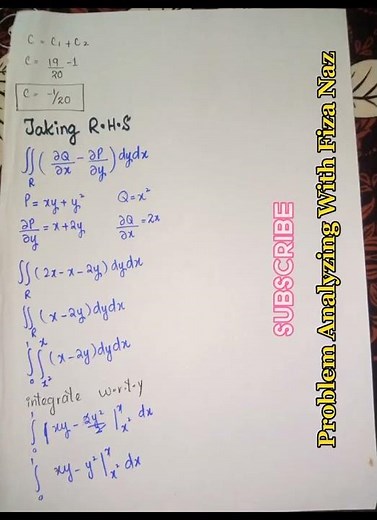 C = C₁ + C₂
C = 19/20 - 1
C = -1/20
Taking R.H.S
∬_R (∂Q/∂x - ∂P/∂y) dydx
P = xy + y² Q = x²
∂P/∂y = x + 2y ∂Q/∂x = 2x
∬_R (2x - x - 2y) dydx
∬_R (x - 2y) dydx
∫₀¹ ∫_{x²}^{x} (x - 2y) dydx
integrate w.r.t.y
∫₀¹ xy - 2y²/2 |_{x²}^{x} dx
∫₀¹ xy - y² |_{x²}^{x} dx
SUBSCRIBE
Problem Analyzing With Fiza Naz